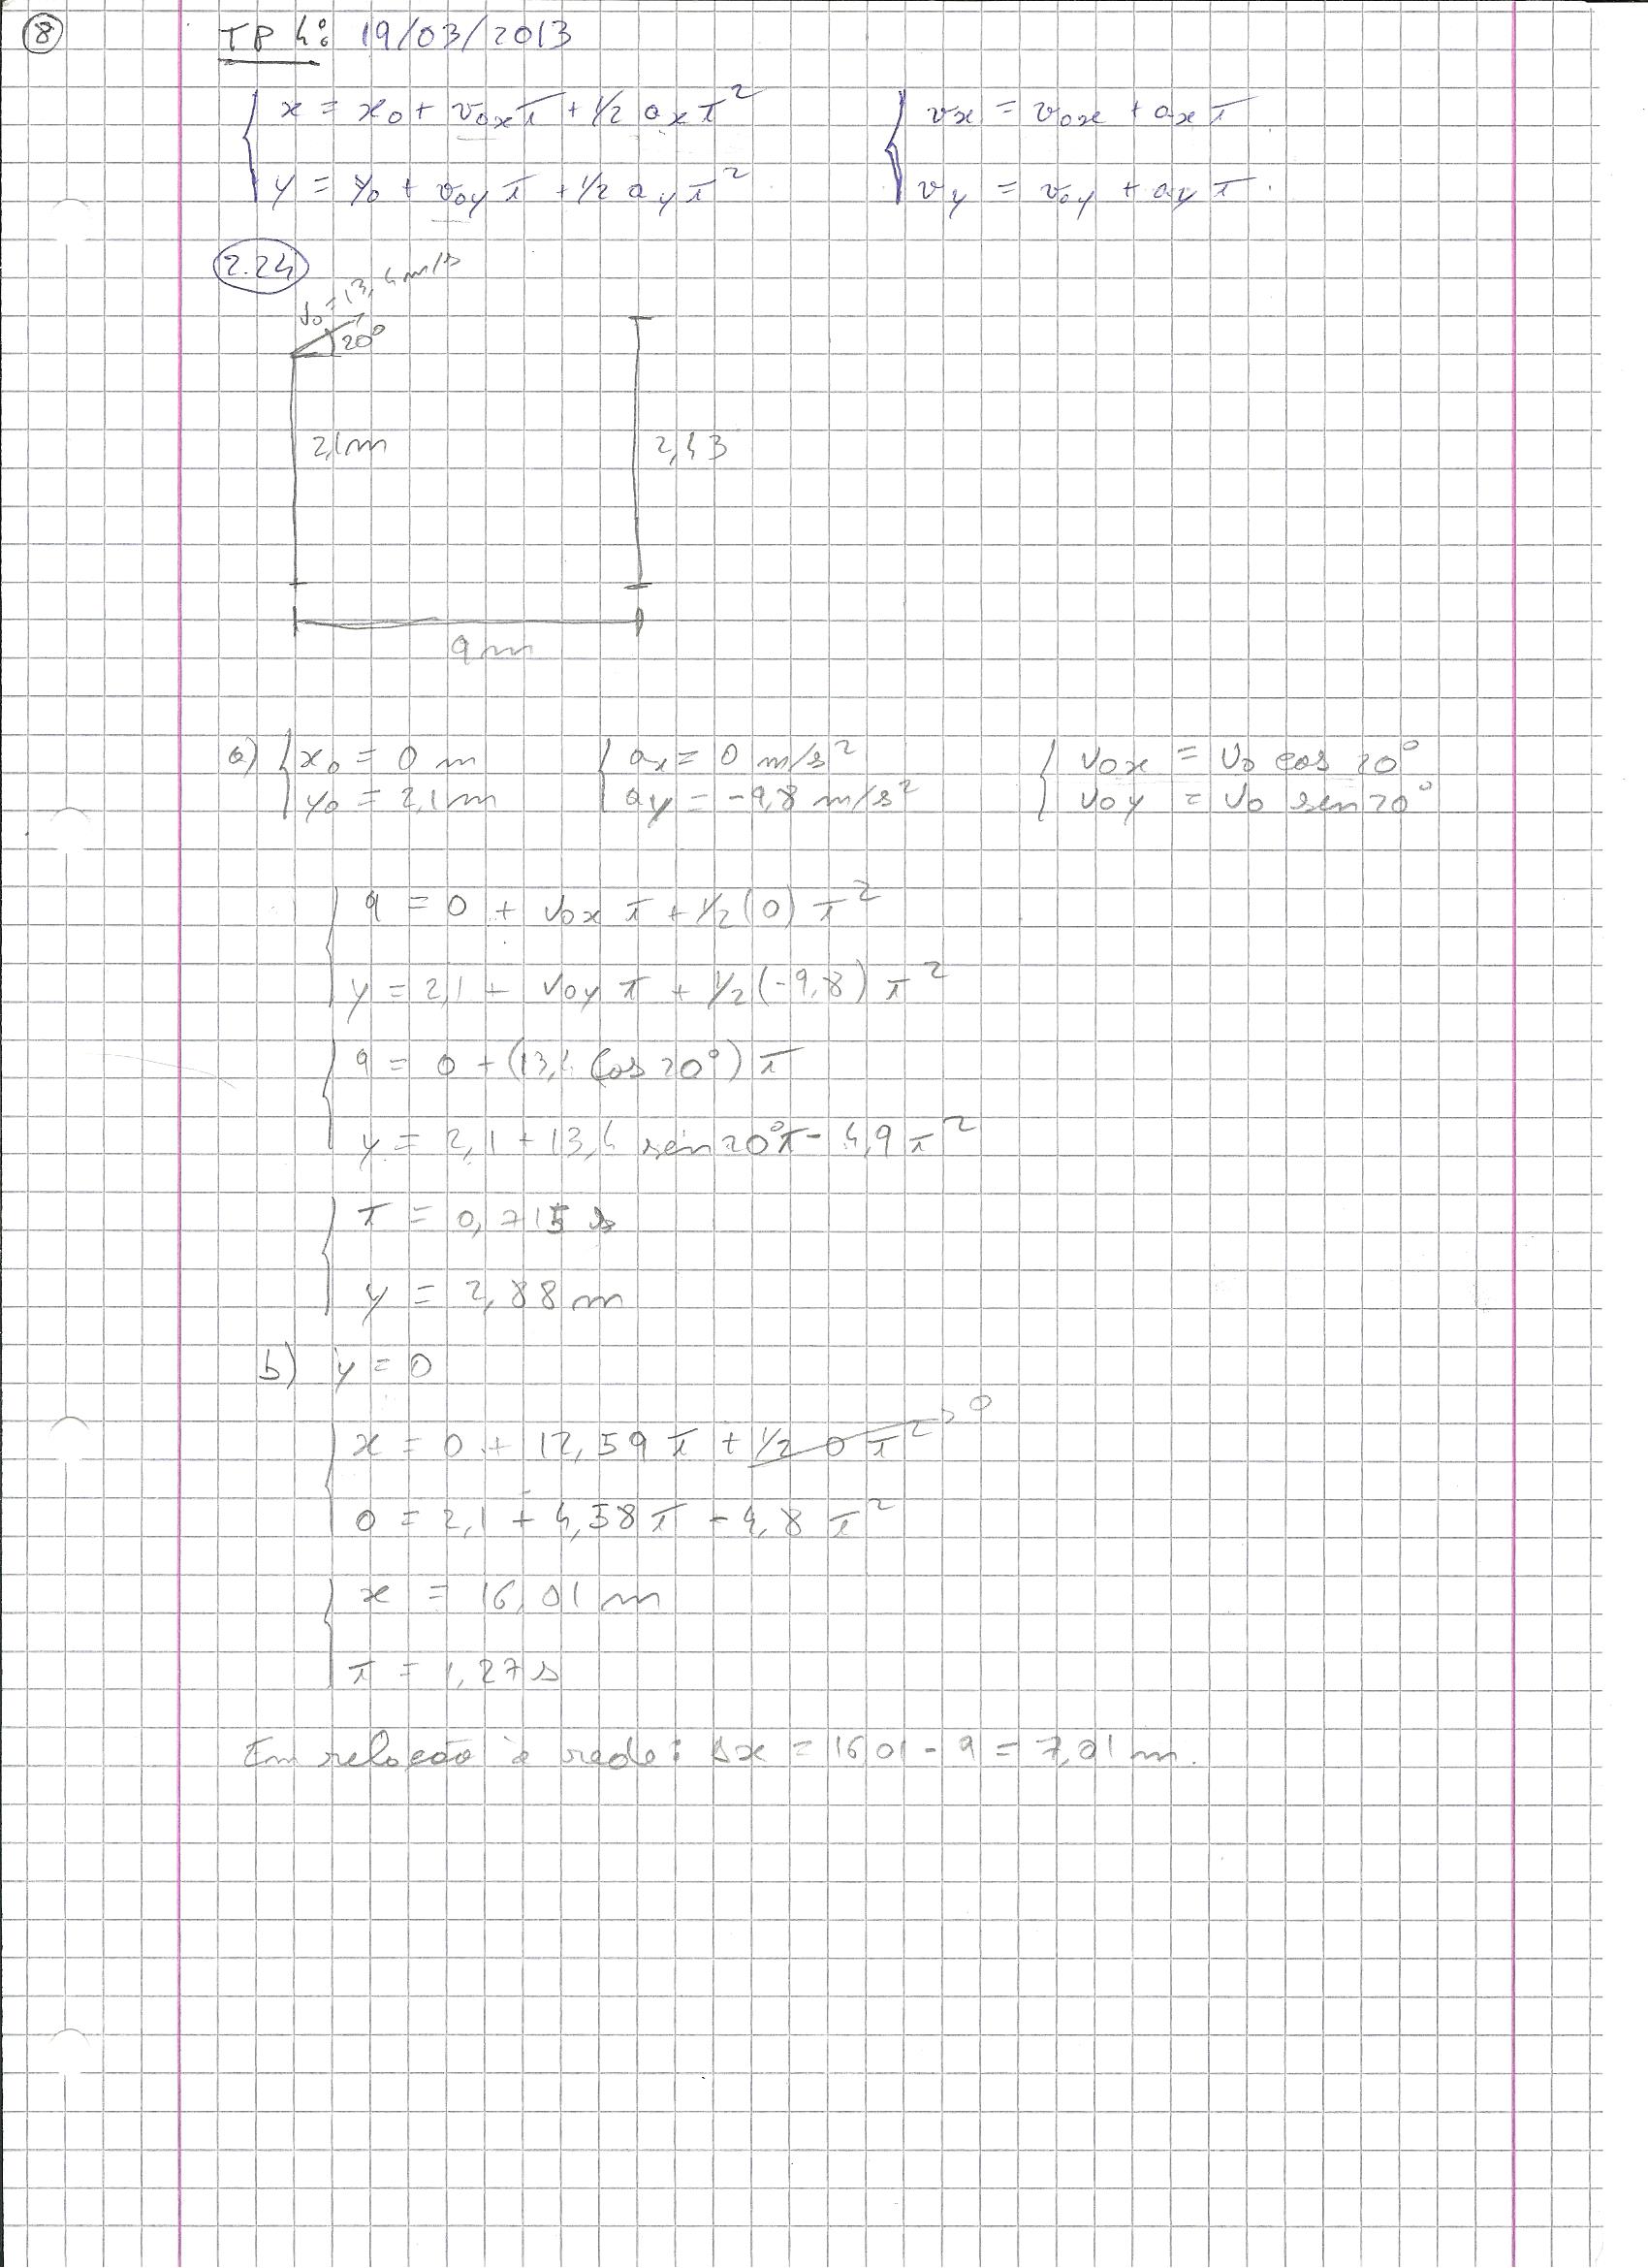 8
TP 4: 19/03/2013
{ x = x₀ + v₀ₓt + 1/2 aₓt²    { vx = v₀x + axt
{ y = y₀ + v₀yt + 1/2 ayt²    { vy = v₀y + ayt.
2.24
v₀ = 13,4 m/s
20°
2,1m    2,43
9m
a) { x₀ = 0 m    { ax = 0 m/s²    { v₀x = v₀ cos 20°
{ y₀ = 2,1m    { ay = -9,8 m/s²    { v₀y = v₀ sen 20°
{ 9 = 0 + v₀x t + 1/2 (0) t²
{ y = 2,1 + v₀y t + 1/2 (-9,8) t²
{ 9 = 0 + (13,4 cos 20°) t
{ y = 2,1 + 13,4 sen 20°t - 4,9 t²
{ t = 0,715 s
{ y = 2,88 m
b) y = 0
{ x = 0 + 12,59 t + 1/2 0 t² → 0
{ 0 = 2,1 + 4,58 t - 4,8 t²
{ x = 16,01 m
{ t = 1,27 s
Em relação à rede: Δx = 16,01 - 9 = 7,01 m.